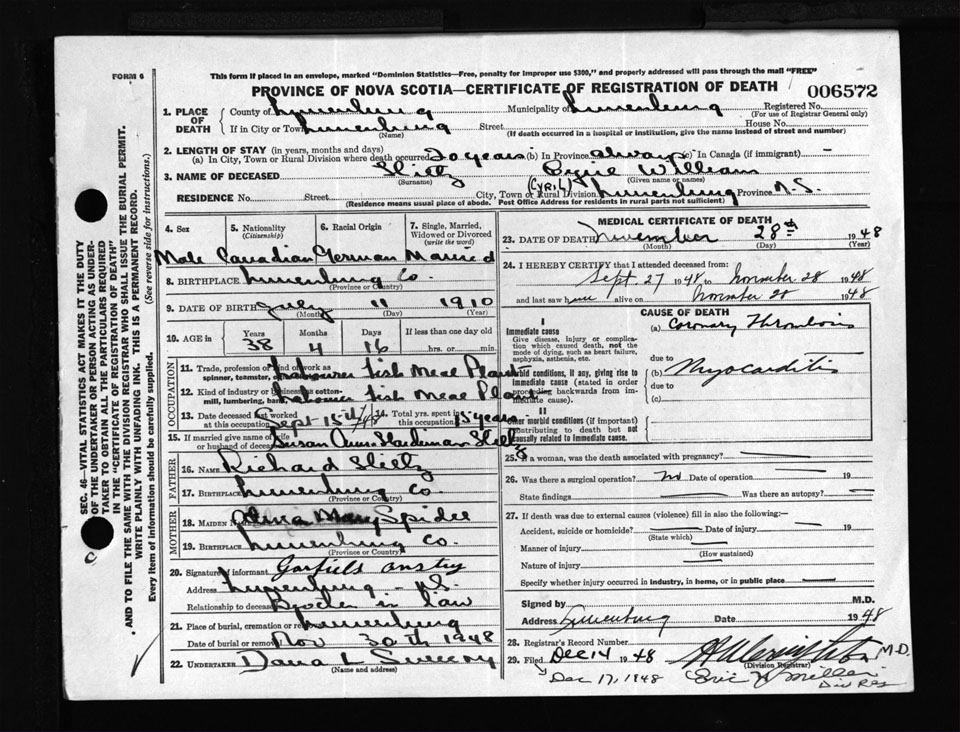 FORM 6
This form if placed in an envelope, marked "Dominion Statistics—Free, penalty for improper use $300," and properly addressed will pass through the mail "FREE"
PROVINCE OF NOVA SCOTIA—CERTIFICATE OF REGISTRATION OF DEATH 006572
1. PLACE OF DEATH County of Lunenburg Municipality of Lunenburg Registered No. (For use of Registrar General only)
If in City or Town Lunenburg (Name) Street House No. (If death occurred in a hospital or institution, give the name instead of street and number)
2. LENGTH OF STAY (in years, months and days)
(a) In City, Town or Rural Division where death occurred 20 years (b) In Province always (c) In Canada (if immigrant) —
3. NAME OF DECEASED (Surname) William (Given name or names)
(Cyril)
RESIDENCE No. Street City, Town or Rural Division Lunenburg Province N.S.
(Residence means usual place of abode. Post Office Address for residents in rural parts not sufficient)
4. Sex 5. Nationality (Citizenship) 6. Racial Origin 7. Single, Married, Widowed or Divorced (write the word)
Male Canadian German Married
8. BIRTHPLACE Lunenburg Co. (Province or Country)
9. DATE OF BIRTH July (Month) 11 (Day) 1910 (Year)
10. AGE in Years 38 Months 4 Days 16 If less than one day old hrs. or min.
OCCUPATION
11. Trade, profession or kind of work as spinner, teamster, Labourer Fish Meal Plant
12. Kind of industry or business as cotton-mill, lumbering, bank Labourer Fish Meal Plant
13. Date deceased last worked at this occupation Sept 15th/48 14. Total yrs. spent in this occupation 15 years
15. If married give name of wife or husband of deceased Susan Ann
FATHER
16. NAME Richard
17. BIRTHPLACE Lunenburg Co. (Province or Country)
MOTHER
18. MAIDEN NAME Mary
19. BIRTHPLACE Lunenburg Co. (Province or Country)
20. Signature of informant
Address Lunenburg - N.S.
Relationship to deceased in law
21. Place of burial, cremation or removal Lunenburg
Date of burial or removal Nov 30th 1948
22. UNDERTAKER Dana L Sweeny (Name and address)
MEDICAL CERTIFICATE OF DEATH
23. DATE OF DEATH November (Month) 28th (Day) 1948 (Year)
24. I HEREBY CERTIFY that I attended deceased from:
Sept. 27 1948 to November 28 1948
and last saw alive on November 28 1948
CAUSE OF DEATH
I
Immediate cause
Give disease, injury or complication which caused death, not the mode of dying, such as heart failure, asphyxia, asthenia, etc.
(a) Coronary Thrombosis
due to
Morbid conditions, if any, giving rise to immediate cause (stated in order proceeding backwards from immediate cause).
(b) Myocarditis
due to
(c)
II
Other morbid conditions (if important) contributing to death but not causally related to immediate cause.
25. If a woman, was the death associated with pregnancy?
26. Was there a surgical operation? no Date of operation 19
State findings Was there an autopsy? —
27. If death was due to external causes (violence) fill in also the following:—
Accident, suicide or homicide? Date of injury 19
(State which)
Manner of injury
(How sustained)
Nature of injury
Specify whether injury occurred in industry, in home, or in public place
Signed by M.D.
Address Lunenburg Date 1948
28. Registrar's Record Number
29. Filed Dec 14 1948 M.D.
(Division Registrar)
Dec 17, 1948 Eric
Div Reg
SEC. 46—VITAL STATISTICS ACT MAKES IT THE DUTY OF THE UNDERTAKER OR PERSON ACTING AS UNDERTAKER TO OBTAIN ALL THE PARTICULARS REQUIRED IN THE "CERTIFICATE OF REGISTRATION OF DEATH" AND TO FILE THE SAME WITH THE DIVISION REGISTRAR WHO SHALL ISSUE THE BURIAL PERMIT.
WRITE PLAINLY WITH UNFADING INK. THIS IS A PERMANENT RECORD.
Every item of information should be carefully supplied. (See reverse side for instructions.)